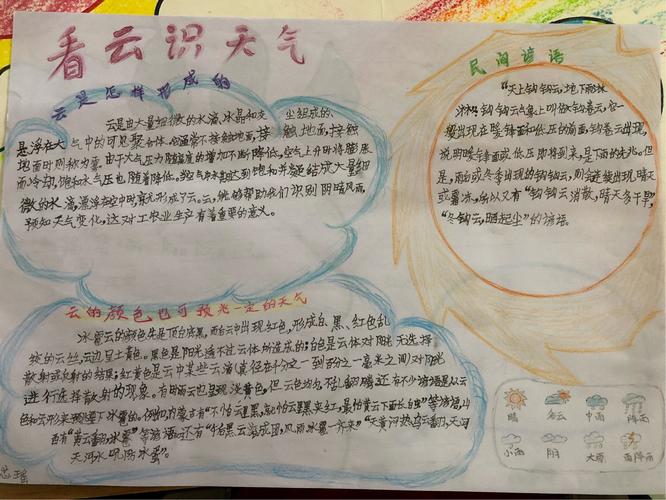 看云识天气
云是怎样形成的
云是由大量细微的水滴、冰晶和灰尘组成的、
悬浮在大气中的可见聚合体。它通常不接触地面,接触地面,接触
地面时则称为雾。由于大气压力随高度的增加不断降低。空气上升时将膨胀
而冷却,饱和水气压也随着降低。到空气中达到饱和并凝结成大量细
微的水滴,漂浮在空中时,就形成了云。云,能够帮助我们识别阴晴风雨,
预知天气变化,这对工农业生产有着重要的意义。
民间谚语
“天上钩钩云,地下雨淋
淋”钩钩云气象上叫做钩卷云,它一
般出现在暖锋面和低压的前面,钩卷云出现,
说明暖锋面或低压即将到来,是下雨的先兆。但
是,雨后或冬季出现的钩钩云,则会连续出现晴天
或霜冻,所以又有“钩钩云消散,晴天多干旱”,
“冬钩云,晒起尘”的谚语。
云的颜色也可预兆一定的天气
冰雹云的颜色先是顶白底黑,而后云中出现红色,形成白、黑、红色乱
绞的云丝,云边呈土黄色。黑色是阳光透不过云体所造成的;白色是云体对阳光无选择
散射或反射的结果;红黄色是云中某些云滴(直径在千分之一到百分之一毫米之间)对阳光
进行选择散射的现象。有时雨云也呈现淡黄色,但云色均匀
不乱翻腾。还有不少谚语是从云
色和云形来
“不怕云里黑,就怕云里黑夹红,最怕黄云下面长白虫”等谚语,山
西有“黄云翻,冰雹
等谚语
还有“午后黑云滚成团,风雨冰雹一齐来”“天黄闷热乌云翻,天河
天河水吼防冰雹”。
晴
多云
中雨
阵雨
小雨
阴
大雨
雷阵雨
瑶